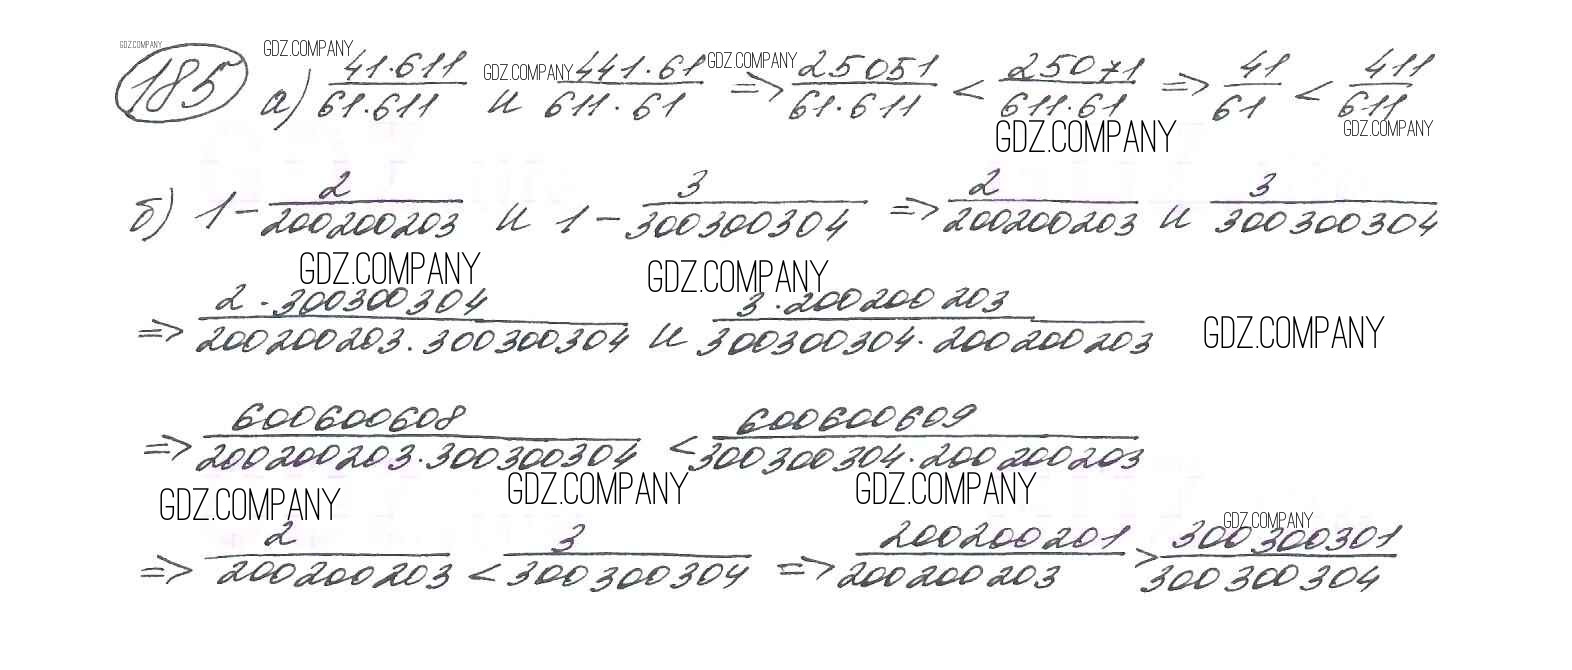 GDZ.COMPANY GDZ.COMPANY GDZ.COMPANY GDZ.COMPANY
185 а) 41·611/61·611 и 441·61/611·61 => 25051/61·611 < 25071/611·61 => 41/61 < 411/611
GDZ.COMPANY GDZ.COMPANY
б) 1 - 2/200200203 и 1 - 3/300300304 => 2/200200203 и 3/300300304
GDZ.COMPANY GDZ.COMPANY
=> 2·300300304/200200203·300300304 и 3·200200203/300300304·200200203
GDZ.COMPANY
=> 600600608/200200203·300300304 < 600600609/300300304·200200203
GDZ.COMPANY GDZ.COMPANY GDZ.COMPANY GDZ.COMPANY
=> 2/200200203 < 3/300300304 => 200200201/200200203 > 300300301/300300304